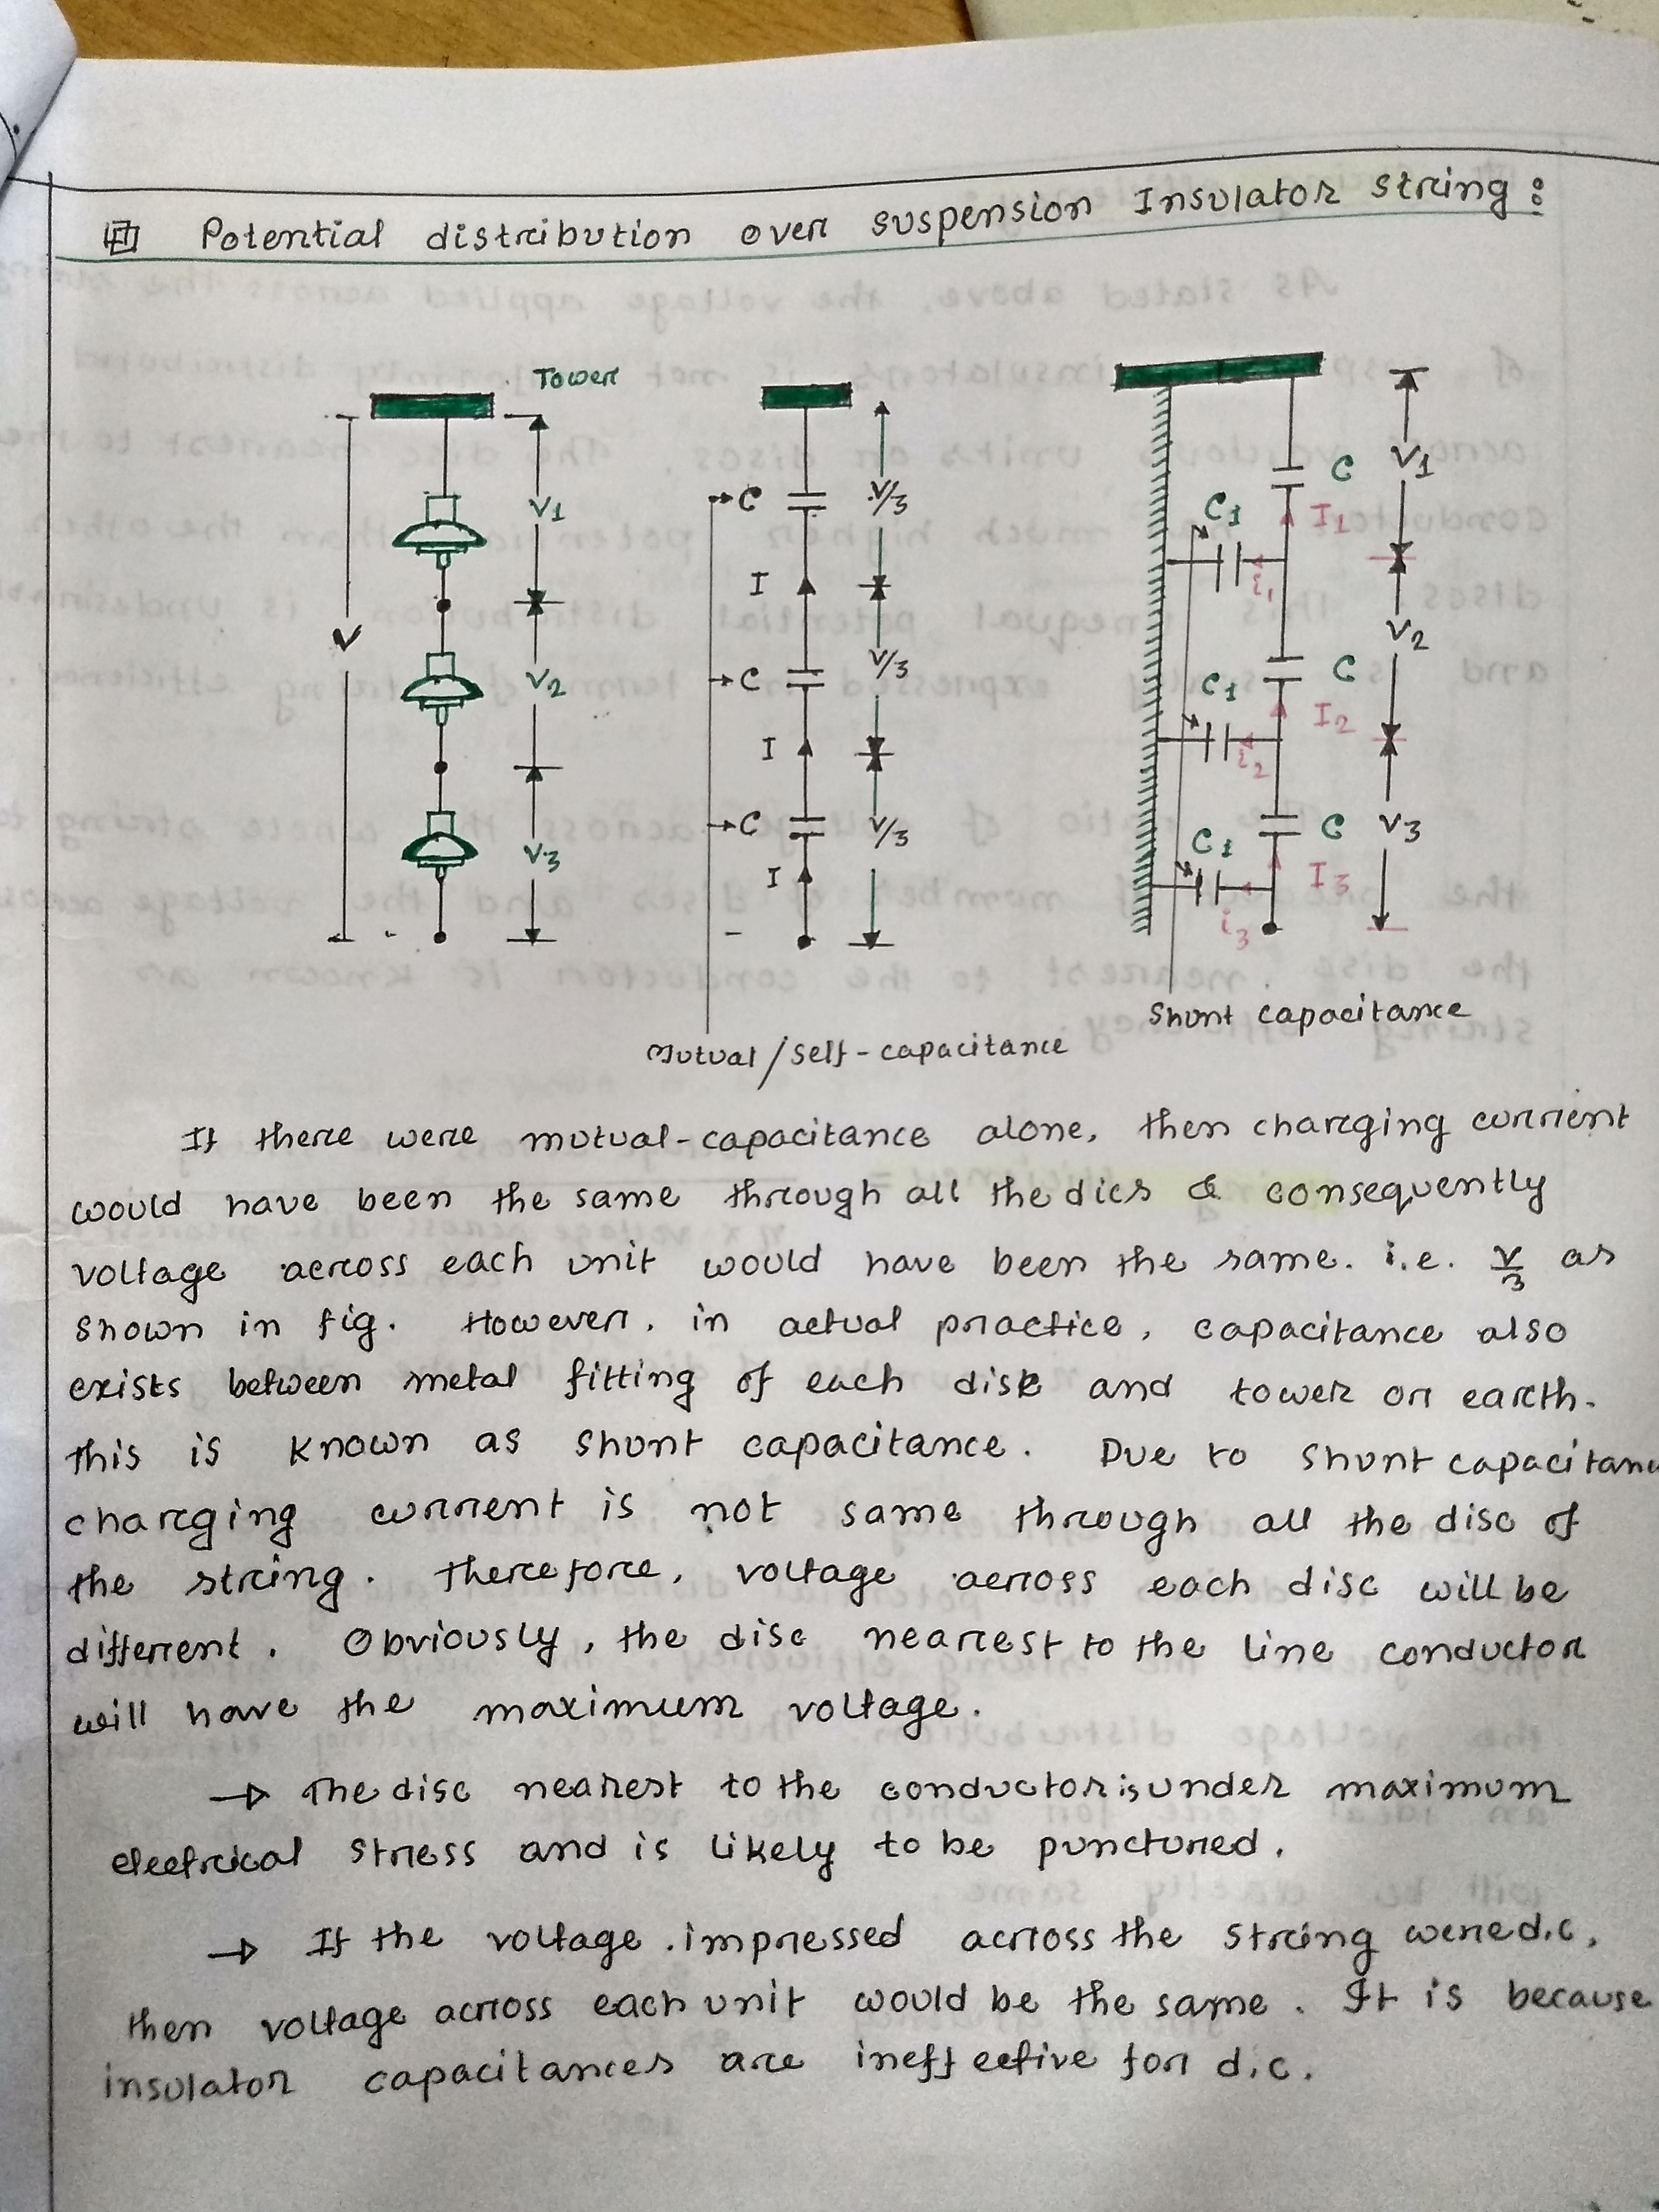 Potential distribution over suspension Insulator string:
Tower
V
V1
V2
V3
C
V/3
I
C
V/3
I
C
V/3
I
Mutual/self-capacitance
C
V1
C1
I1
i1
C
V2
C1
I2
i2
C
V3
C1
I3
i3
Shunt capacitance
If there were mutual-capacitance alone, then charging current
would have been the same through all the dics & consequently
voltage across each unit would have been the same. i.e. V/3 as
shown in fig. However, in actual practice, capacitance also
exists between metal fitting of each disk and tower or earth.
this is known as shunt capacitance. Due to shunt capacitanc
charging current is not same through all the disc of
the string. Therefore, voltage across each disc will be
different. Obviously, the disc nearest to the line conductor
will have the maximum voltage.
→ The disc nearest to the conductor is under maximum
electrical stress and is likely to be punctured.
→ If the voltage impressed across the string were d.c,
then voltage across each unit would be the same. It is because
insulator capacitances are ineffective for d.c.